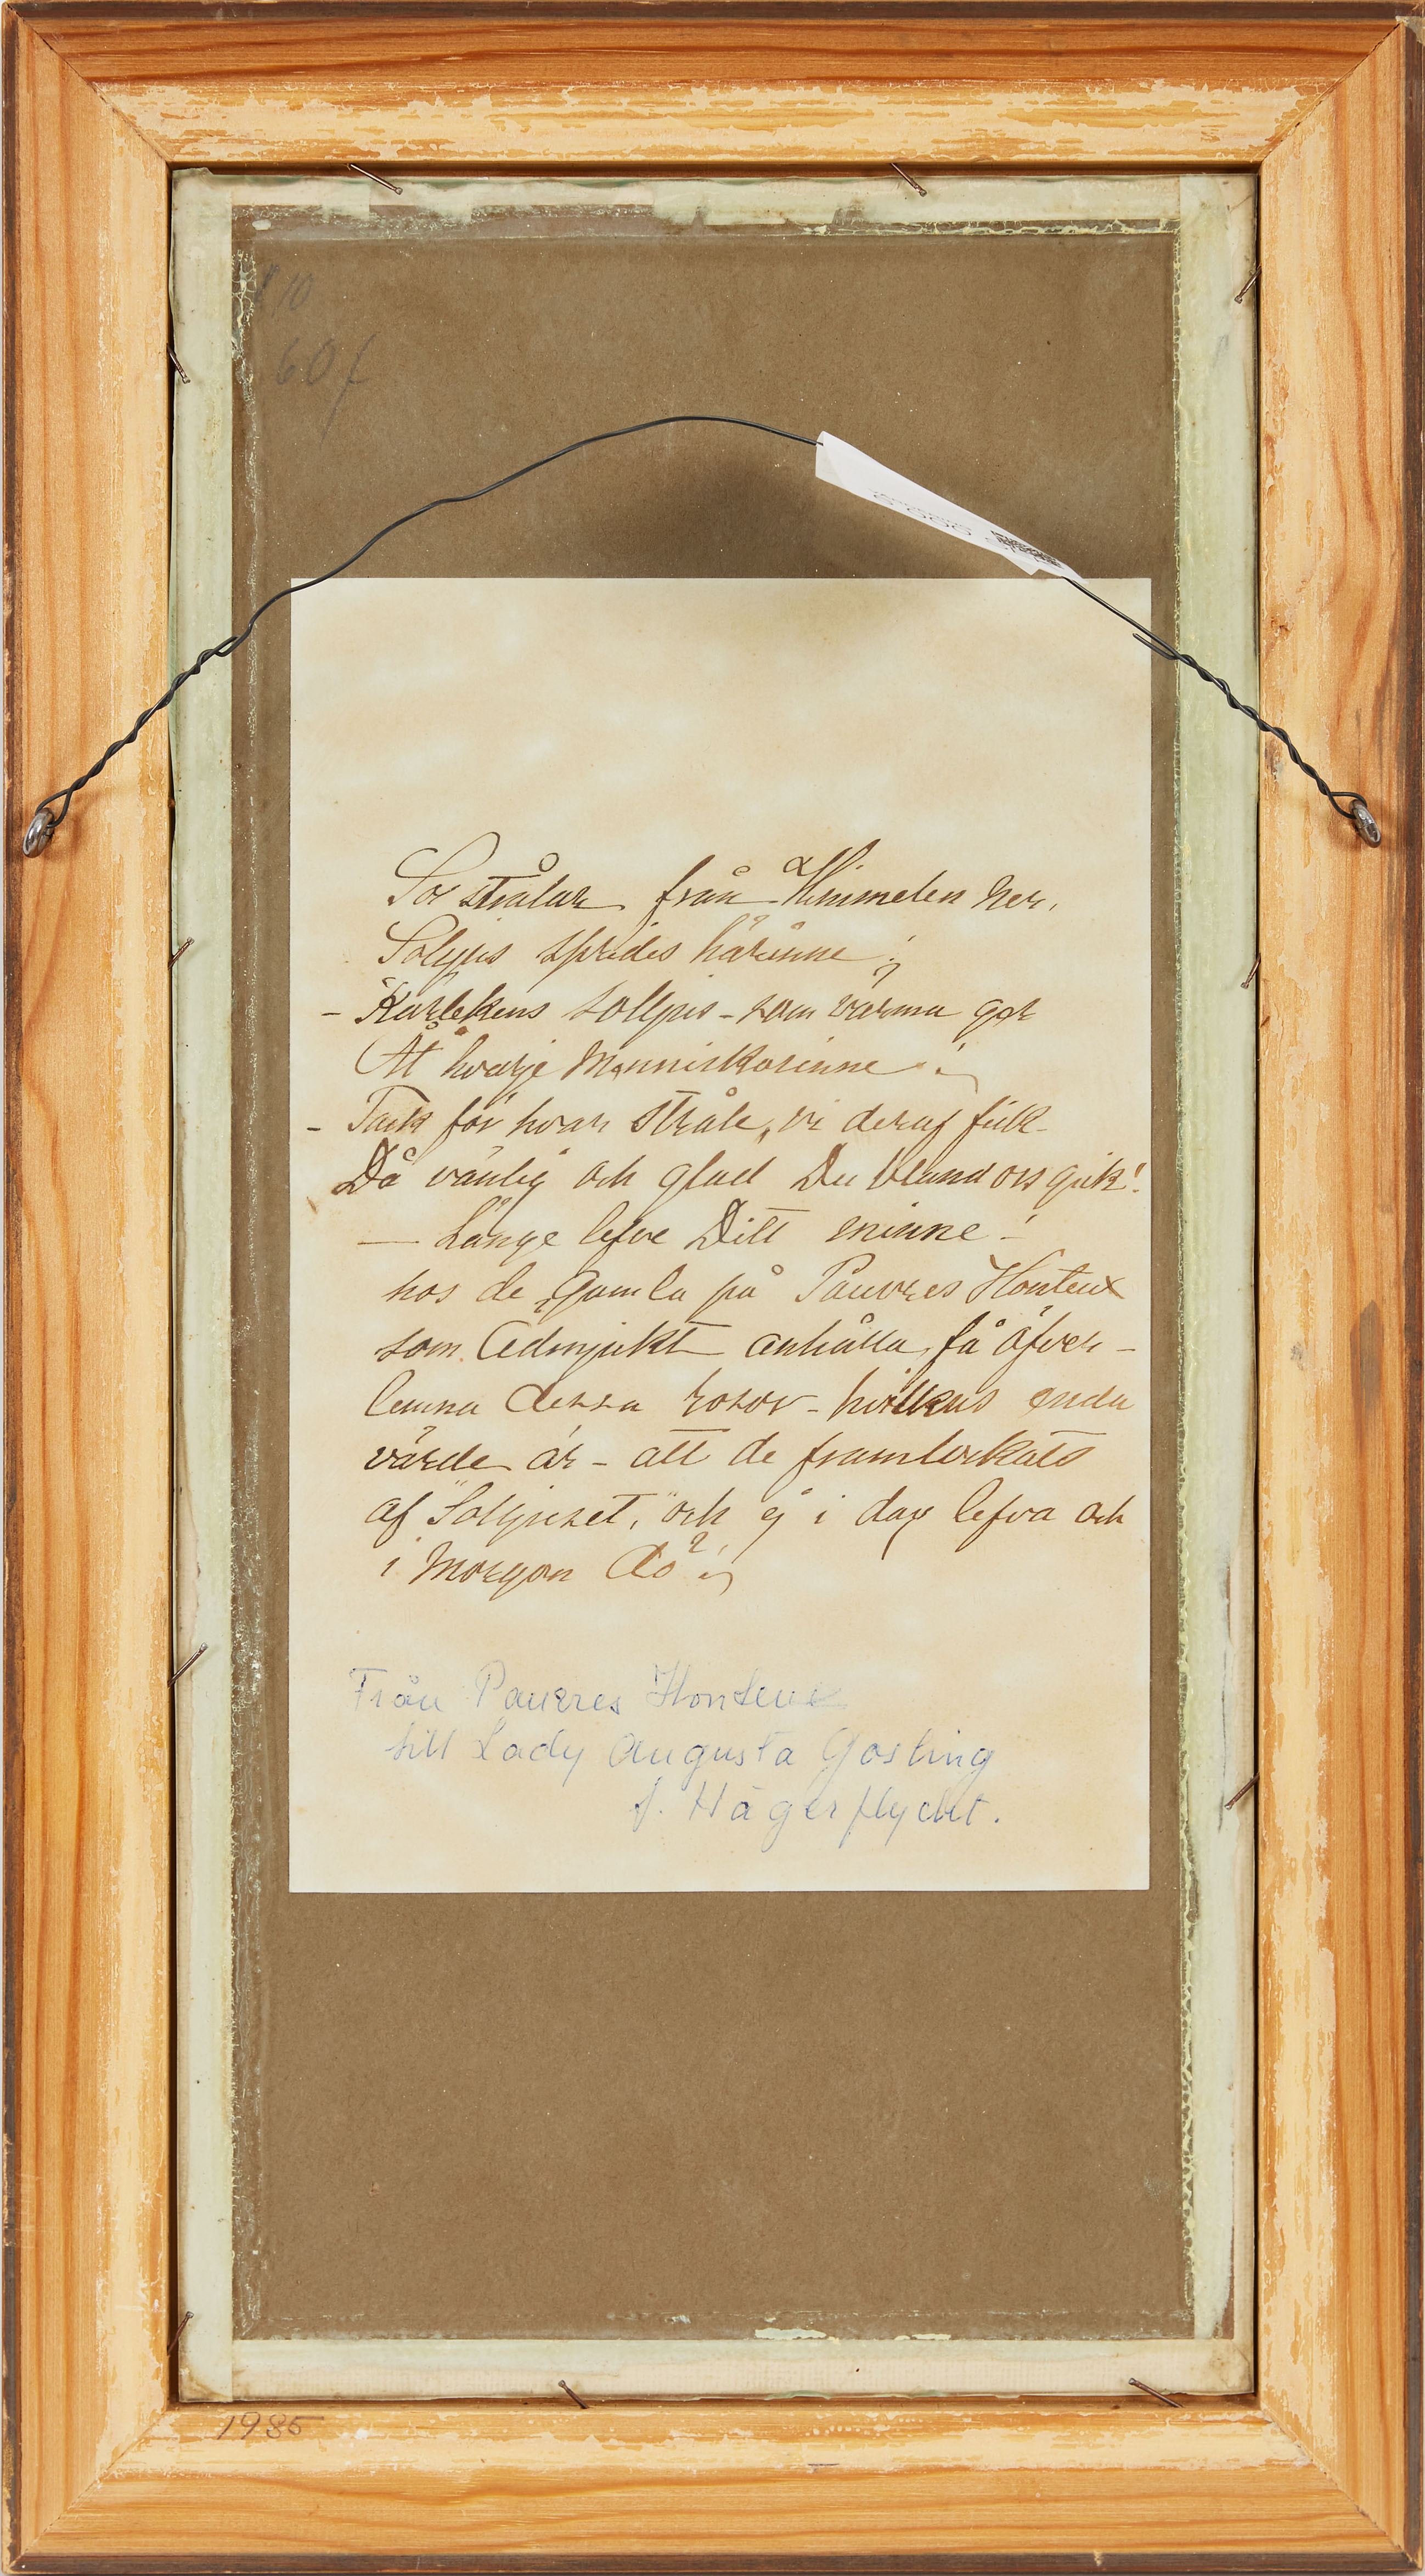 10
60
Sol strålar från Himmelen ner,
Solljus sprides härinne;
- Kärlekens solljus - som värma ger
Åt hvarje Menniskosinne;
- Tack för hvar stråle, vi deraf fick
Då vänlig och glad Du bland oss gick!
— Länge lefve Ditt minne!
hos de gamla på Pauvres Honteux
som Ödmjukt anhålla, få öfver-
lemna dessa rosor - hvilkens enda
värde är - att de framlockats
af "Solljuset," och ej i dag lefva och
i Morgon dö;
Från Pauvres Honteux
till Lady Augusta Gosling
f. Hägerflycht.
1985